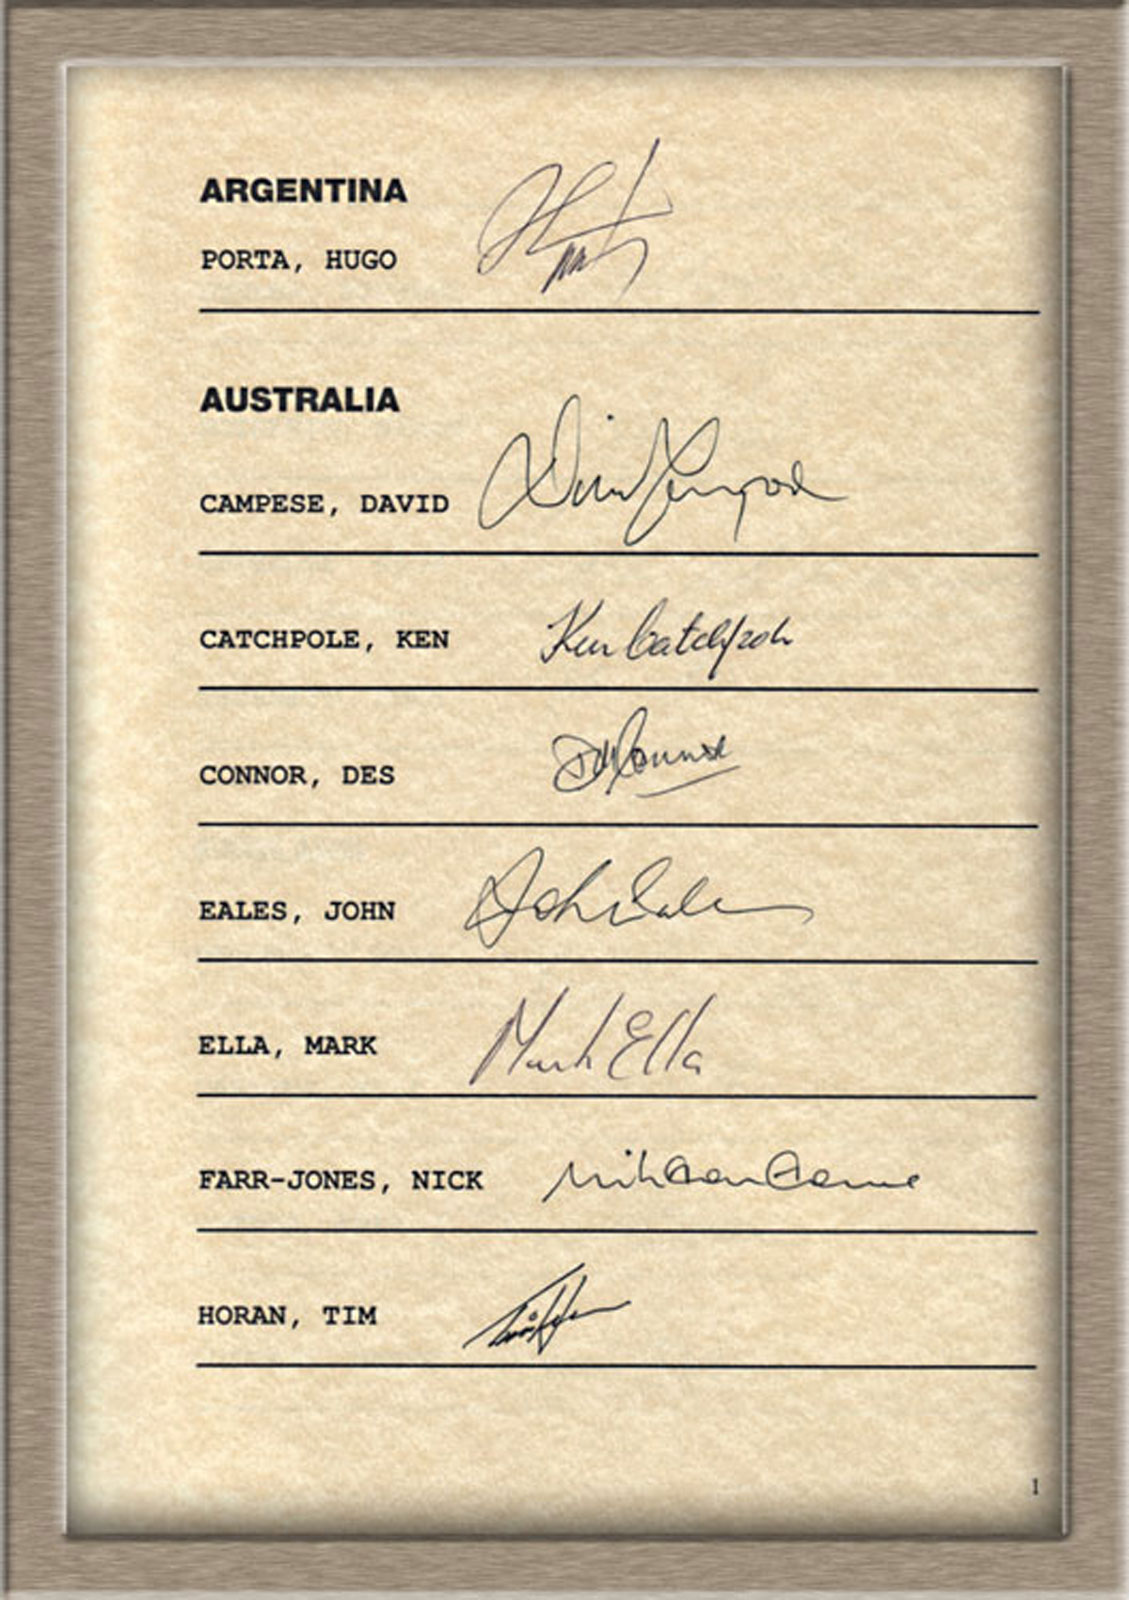 ARGENTINA
PORTA, HUGO
AUSTRALIA
CAMPESE, DAVID
CATCHPOLE, KEN Ken Catchpole
CONNOR, DES
EALES, JOHN John Eales
ELLA, MARK Mark Ella
FARR-JONES, NICK
HORAN, TIM
1